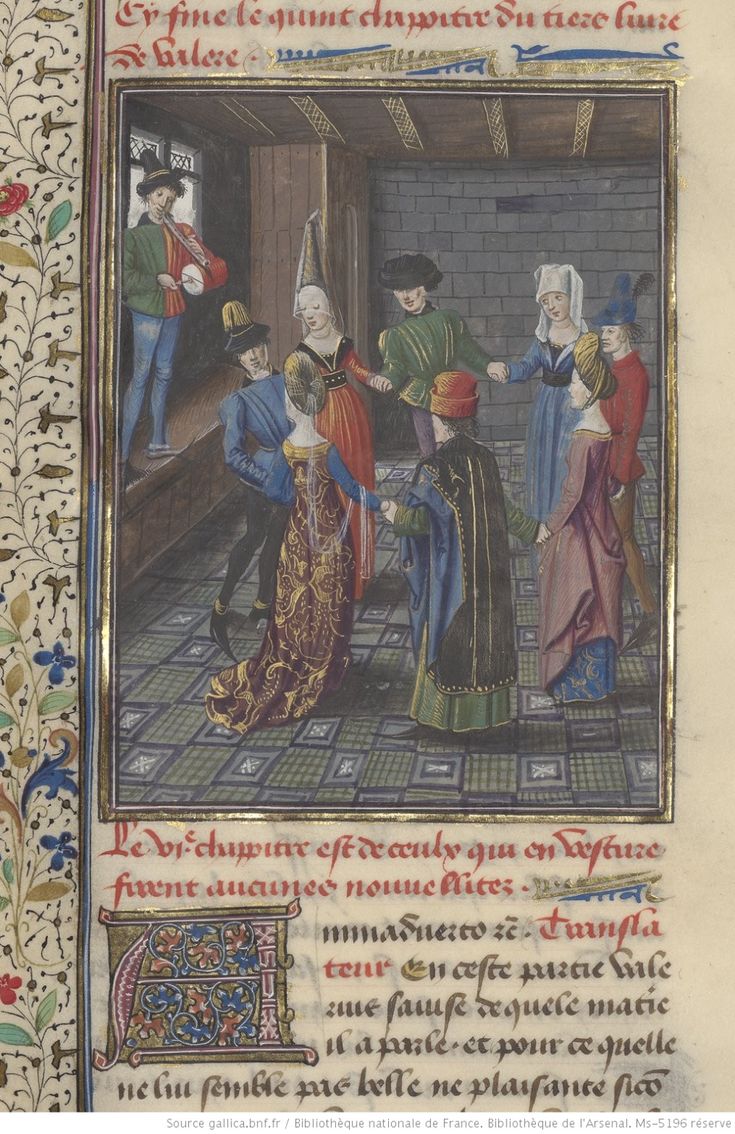 Cy fine le quint chappitre du tiers liure
de valere .
Le vi^e chappitre est de ceulx qui en vesture
firent aucunes nouuellitez .
Animaduerto rc̄. Transla
teur En ceste partie vale
rius sauise de quele matie
il a parle . et pour ce quelle
ne lui semble pas belle ne plaisante sicō
Source gallica.bnf.fr / Bibliothèque nationale de France. Bibliothèque de l'Arsenal. Ms-5196 réserve